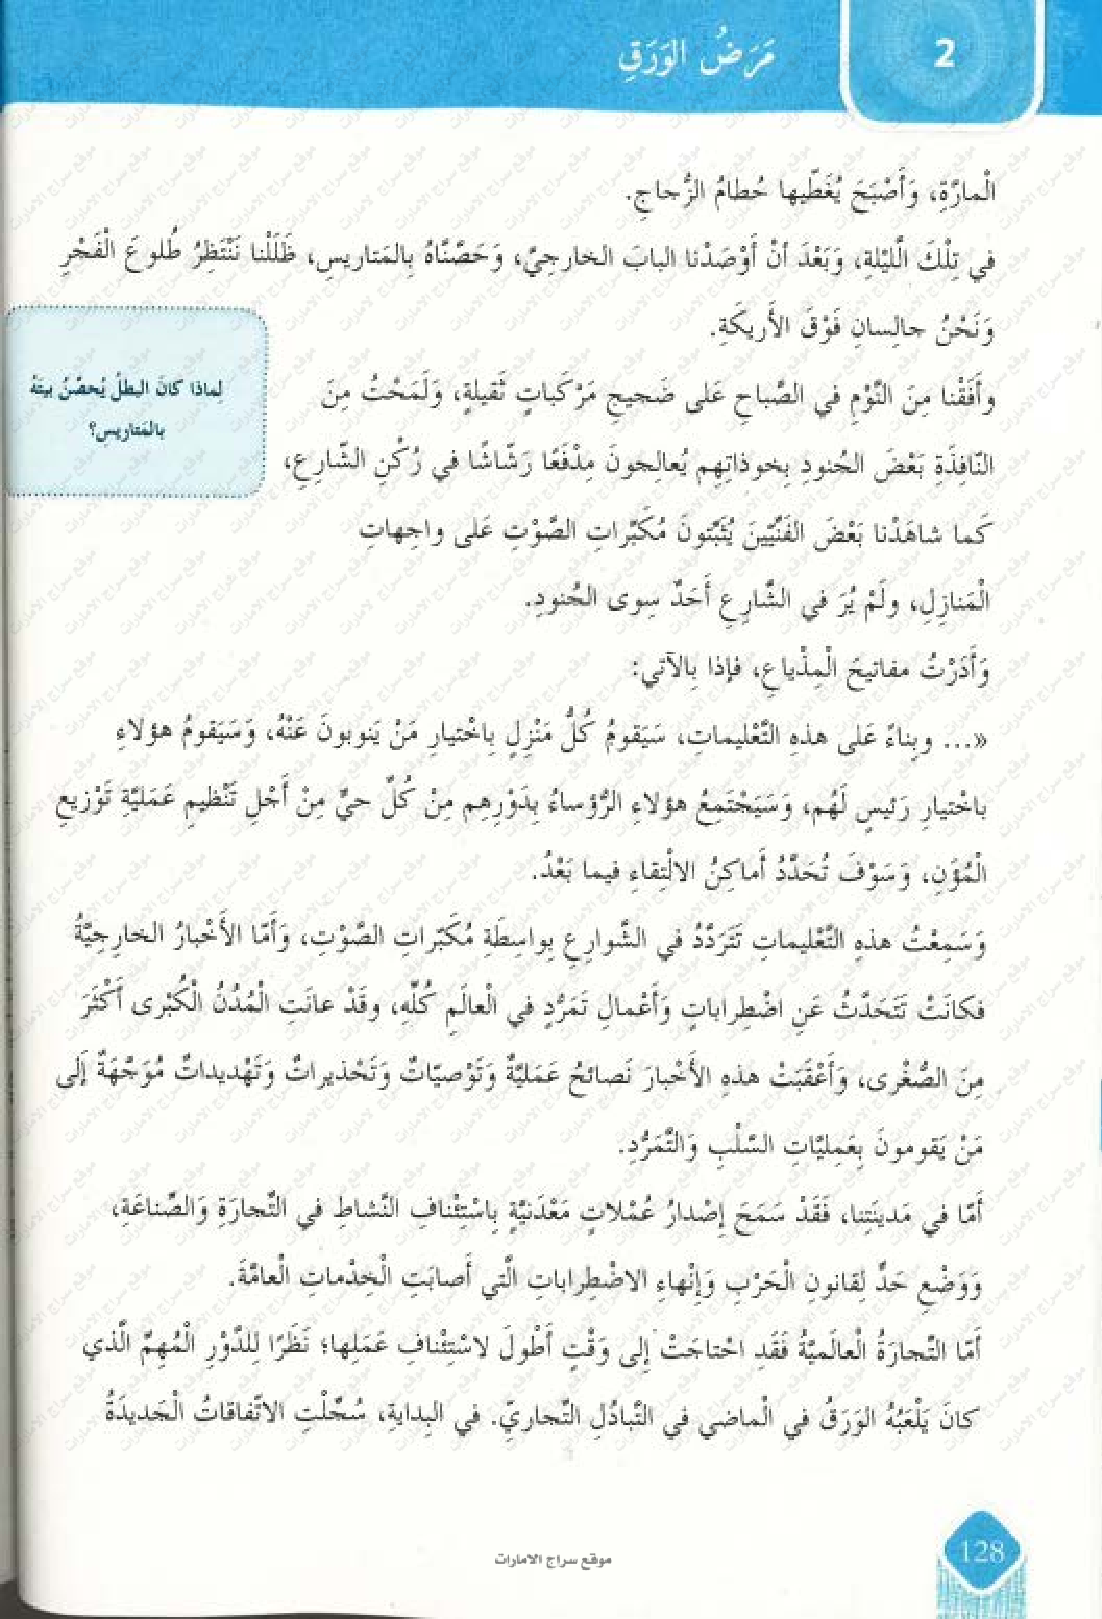 2
مَرَضُ الوَرَقِ
الْمارَّةِ، وَأَصْبَحَ يُغَطّيها حُطامُ الزُّجاجِ.
في تِلْكَ الَّليْلةِ، وَبَعْدَ أنْ أَوْصَدْنا البابَ الخارجِيَّ، وَحَصَّنّاهُ بِالمَتاريسِ، ظَلَلْنا نَنْتَظِرُ طُلوعَ الْفَجْرِ
وَنَحْنُ جالِسانِ فَوْقَ الأَريكَةِ.
وأَفَقْنا مِنَ النَّوْمِ في الصَّباحِ عَلى ضَجيجِ مَرْكَباتٍ ثَقيلةٍ، وَلَمَحْتُ مِنَ
النّافِذَةِ بَعْضَ الجُنودِ بِخوذاتِهِم يُعالِجونَ مِدْفَعًا رَشّاشًا في رُكْنِ الشّارِعِ،
كَما شاهَدْنا بَعْضَ الفَنِّيّينَ يُثَبِّتونَ مُكَبِّراتِ الصَّوْتِ عَلى واجِهاتِ
الْمَنازِلِ، ولَمْ يُرَ في الشَّارِعِ أَحَدٌ سِوى الجُنودِ.
لِماذا كانَ البطلُ يُحصِّنُ بيتَهُ
بالمَتاريسِ؟
وَأَدَرْتُ مفاتيحَ الْمِذْياعِ، فإذا بِالآتي:
«... وبِناءً عَلى هذهِ التَّعْليماتِ، سَيَقومُ كُلُّ مَنْزِلٍ بِاخْتيارِ مَنْ يَنوبونَ عَنْهُ، وَسَيَقومُ هؤلاءِ
باخْتيارِ رَئيسٍ لَهُم، وَسَيَجْتَمِعُ هؤلاءِ الرُّؤساءُ بِدَوْرِهِم مِنْ كُلِّ حيٍّ مِنْ أَجْلِ تَنْظيمِ عَمَليَّةِ تَوْزيعِ
الْمُؤَنِ، وَسَوْفَ تُحَدَّدُ أَماكِنُ الالْتِقاءِ فيما بَعْدُ.
وَسَمِعْتُ هذهِ التَّعْليماتِ تَتَرَدَّدُ في الشَّوارِعِ بِواسِطَةِ مُكَبّراتِ الصَّوْتِ، وَأَمّا الأَخْبارُ الخارِجِيَّةُ
فكانَتْ تَتَحَدَّثُ عَنِ اضْطِراباتٍ وَأَعْمالِ تَمَرُّدٍ في الْعالَمِ كُلِّهِ، وقَدْ عانَتِ الْمُدُنُ الْكُبْرى أَكْثَرَ
مِنَ الصُّغْرى، وَأَعْقَبَتْ هذهِ الأَخْبارَ نَصائحُ عَمَليَّةٌ وَتَوْصيّاتٌ وَتَحْذيراتٌ وَتَهْديداتٌ مُوَجَّهَةٌ إلى
مَنْ يَقومونَ بِعَمِليَّاتِ السَّلْبِ وَالتَّمَرُّدِ.
أَمّا في مَدينَتِنا، فَقَدْ سَمَحَ إِصْدارُ عُمْلاتٍ مَعْدَنيَّةٍ بِاسْتِئْنافِ النَّشاطِ في التِّجارَةِ وَالصِّناعَةِ،
وَوَضْعِ حَدٍّ لِقانونِ الْحَرْبِ وَإِنْهاءِ الاضْطِراباتِ الَّتي أَصابَتِ الْخِدْماتِ الْعامَّةَ.
أَمّا التِّجارَةُ الْعالَميَّةُ فَقَدِ احْتاجَتْ إِلى وَقْتٍ أَطْولَ لاسْتِئْنافِ عَمَلِها؛ نَظَرًا لِلدَّوْرِ الْمُهِمِّ الَّذي
كانَ يَلْعَبُهُ الوَرَقُ في الْماضي في التَّبادُلِ التِّجاريِّ. في البِدايةِ، سُجِّلَتِ الاتِّفاقاتُ الْجَديدَةُ
128
موقع سراج الامارات